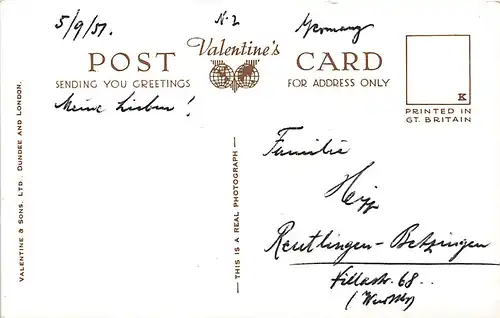 5/9/51.
N-2
Germany
POST Valentine's CARD
SENDING YOU GREETINGS
FOR ADDRESS ONLY
K
PRINTED IN
GT. BRITAIN
Meine Lieben!
VALENTINE & SONS, LTD. DUNDEE AND LONDON.
— THIS IS A REAL PHOTOGRAPH —
Familie
Reutlingen-Betzingen
68